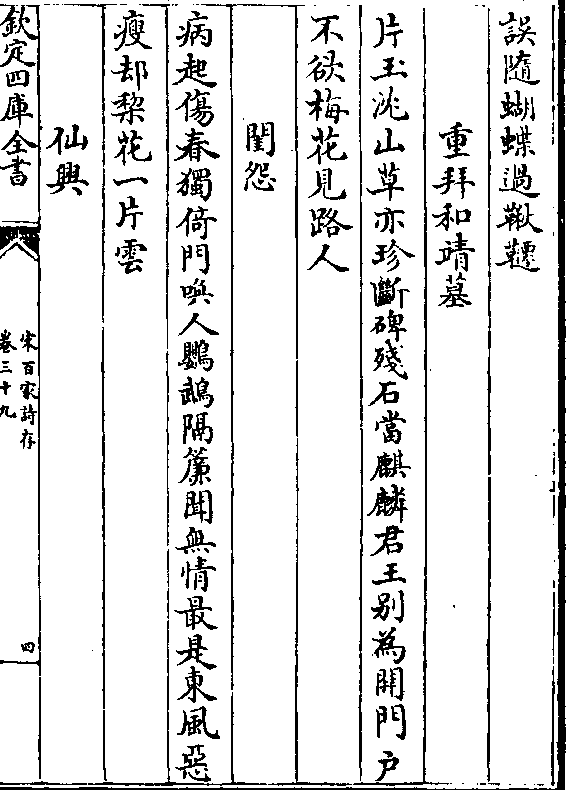 誤隨蝴蝶過鞦韆
重拜和靖墓
片玉沈山草亦珍斷碑殘石當麒麟君王别為開門户
不欲梅花見路人
閨怨
病起傷春獨倚門喚人鸚鵡隔簾聞無情最是東風惡
瘦却梨花一片雲
仙興
欽定四庫全書
宋百家詩存
卷三十九
四